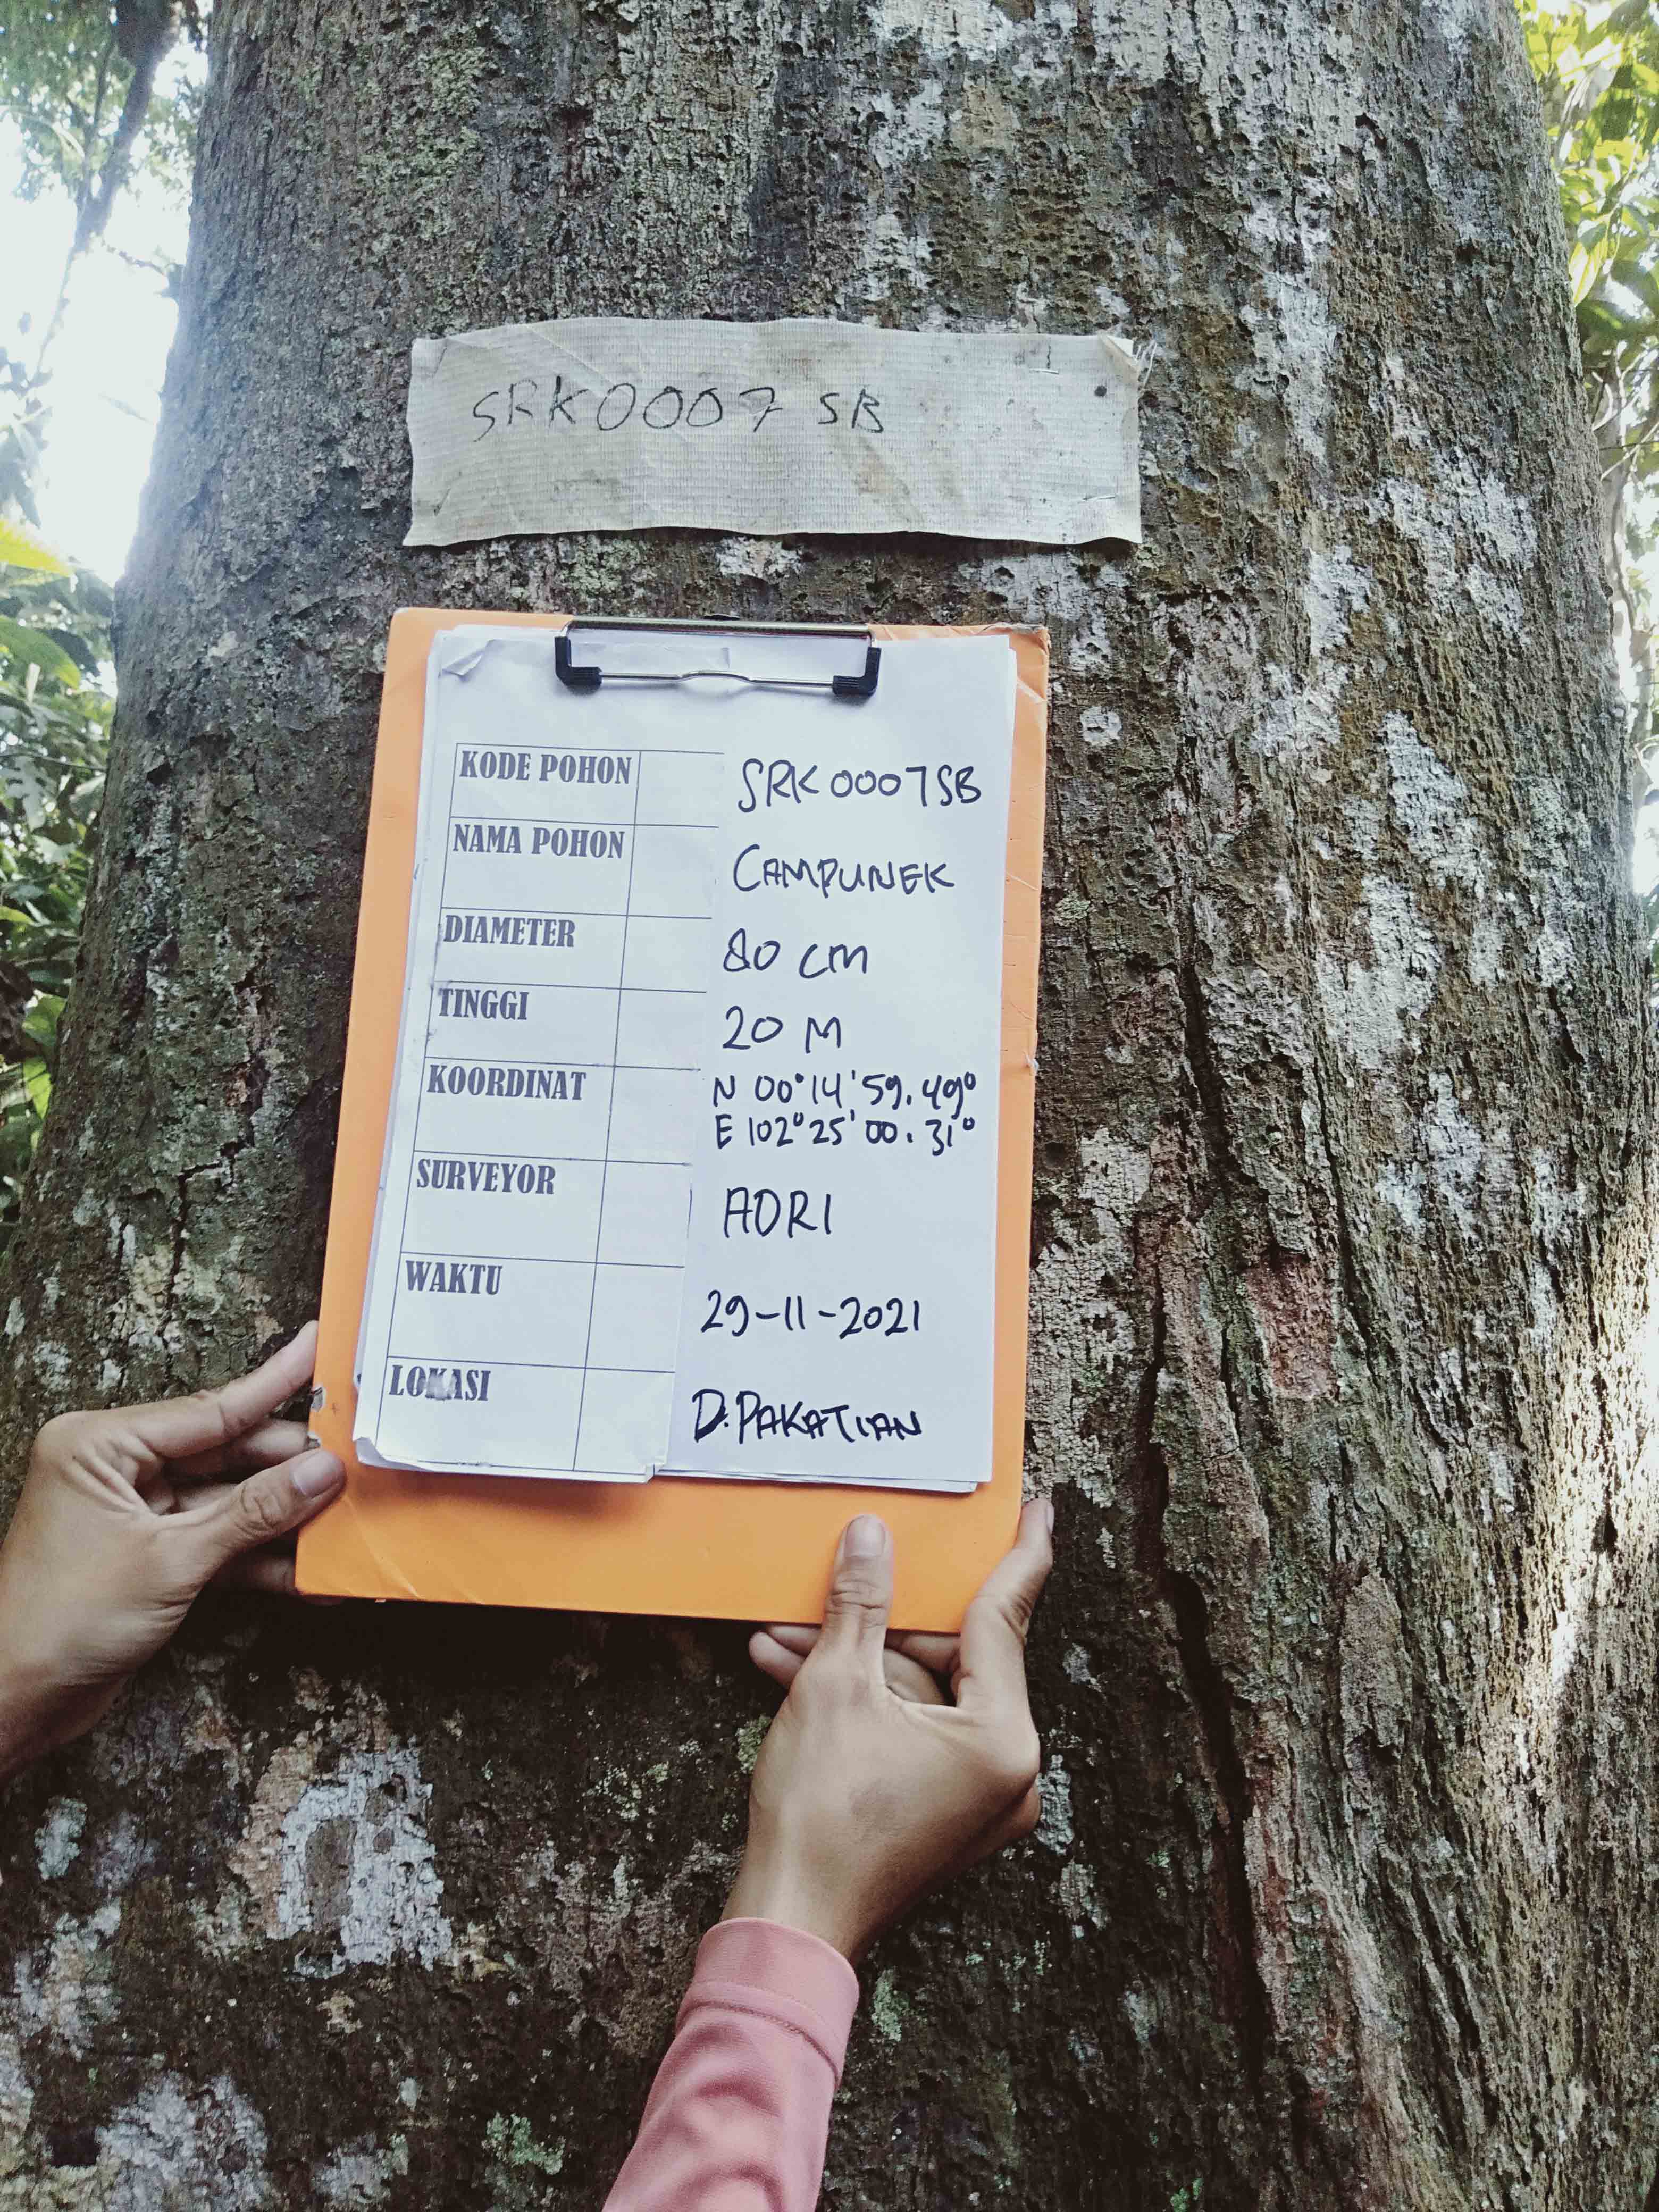 SRK0007 SB
KODE POHON SRK0007SB
NAMA POHON CAMPUNEK
DIAMETER 80 CM
TINGGI 20 M
KOORDINAT N 00°14'59.49°
E 102°25'00.31°
SURVEYOR ADRI
WAKTU 29-11-2021
LOKASI D.PAKATIAN